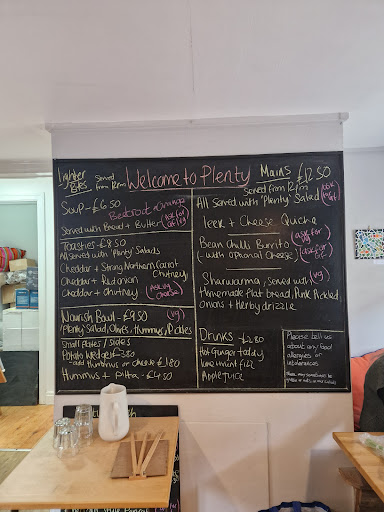 Welcome to Plenty
Lighter Bites Served from 12pm
Soup - £6.50
Beetroot & Orange
Served with Bread + Butter (Ask for GF/VG)
Toasties - £8.50
All served with 'Plenty' Salads
Cheddar + Strong Northern Carrot Chutney
Cheddar + Red onion
Cheddar + Chutney
(Ask VG cheese)
Nourish Bowl - £9.50 (VG)
'Plenty' Salad, Olives, Hummus, Pickles
Small Plates / Sides
Potato Wedges £3.80
- add Hummus or cheese £1.80
Hummus + Pitta - £4.50
Mains £12.50
Served from 12pm
All Served with 'Plenty' Salad (Ask GF)
Leek + Cheese Quiche
Bean Chilli Burrito (ask for GF)
(- with optional Cheese) (ask for VG)
Shawarma, Served with (VG)
Homemade flat bread, Pink Pickled
Onions + Herby drizzle
Drinks - £2.80
Hot Ginger toddy
Lime mint fizz
Apple Juice
Please tell us
about any food
allergies or
intolerances